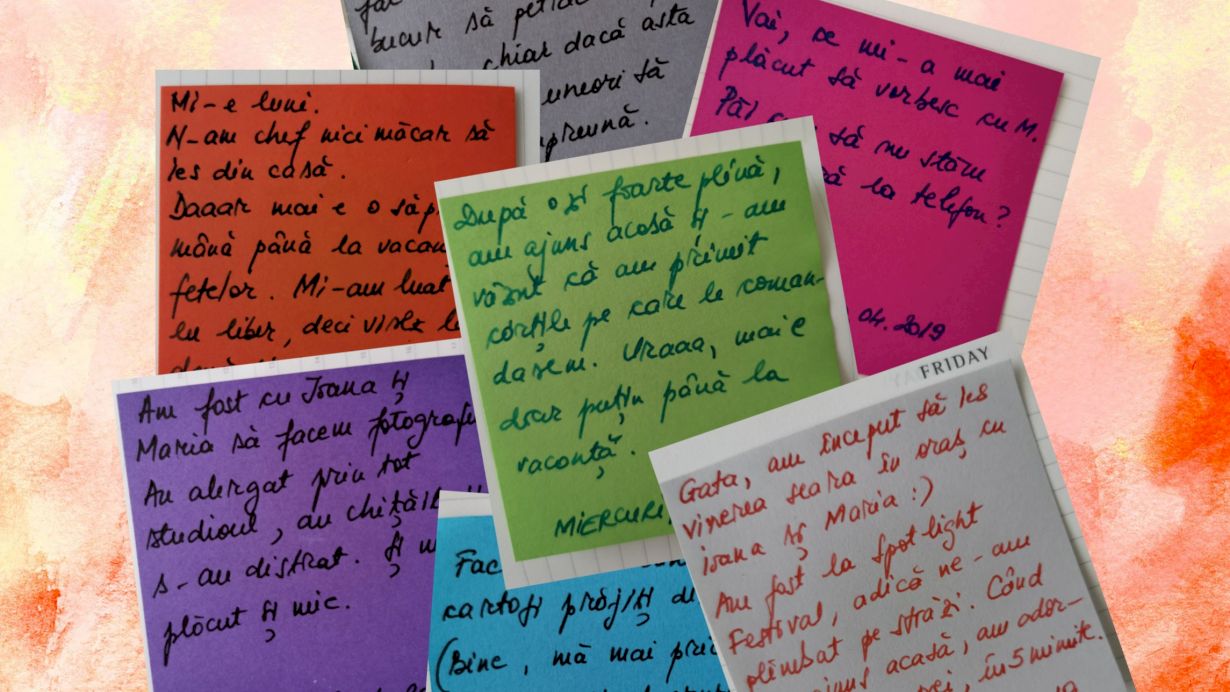 bucur să petrec
chiar dacă asta
uneori să
împreună.
Vai, ce mi-a mai
plăcut să vorbesc cu M.
Păi să nu stăm
la telefon?
04.2019
Mi-e luni.
N-am chef nici măcar să
ies din casă.
Daaar mai e o săp
mână până la vacan
fetelor. Mi-am luat
eu liber, deci
După o zi foarte plină,
am ajuns acasă și-am
văzut că am primit
cărțile pe care le coman-
dasem. Uraaa, mai e
doar puțin până la
vacanță.
MIERCURI,
Am fost cu Ioana și
Maria să facem fotografii
Au alergat prin tot
studioul, au chițăit
s-au distrat. Și
plăcut și mie.
Fac
cartofi prăjiți de
(Bine, mă mai
FRIDAY
Gata, am început să ies
vinerea seara în oraș cu
Ioana și Maria :)
Am fost la Spotlight
Festival, adică ne-am
plimbat pe străzi. Când
acasă, am ador-
în 5 minute.